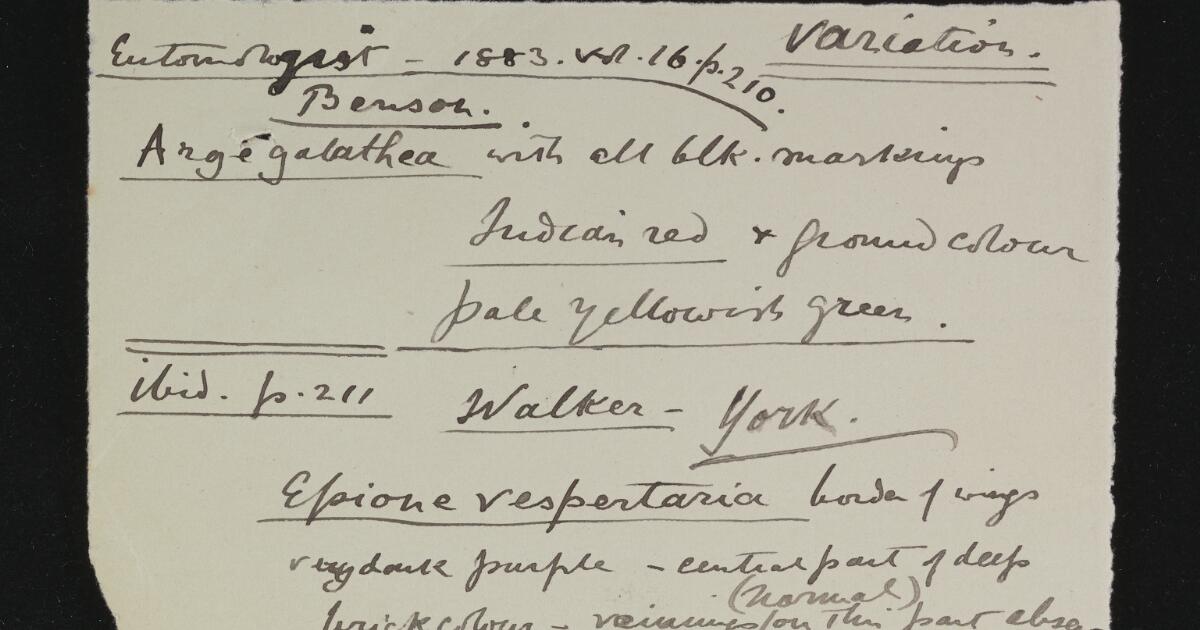 Entomologist - 1883. vol. 16. p. 210. Variation.
Benson.
Arge galathea with all blk. markings
Indian red & ground colour
pale yellowish green.
ibid. p. 211 Walker - York.
Epione vespertaria border of wings
very dark purple - central part of deep
(normal)
brick colour - veinings on this part